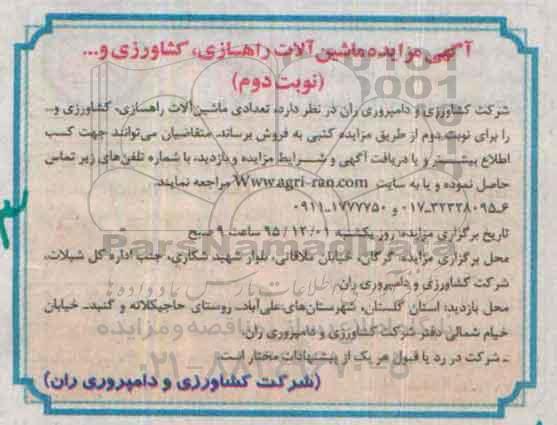 آگهی مزایده ماشین آلات راهسازی، کشاورزی و...
(نوبت دوم)
شرکت کشاورزی و دامپروری ران در نظر دارد، تعدادی ماشین آلات راهسازی، کشاورزی و...
را برای نوبت دوم از طریق مزایده کتبی به فروش برساند. متقاضیان می‌توانند جهت کسب
اطلاع بیشتر و یا دریافت آگهی و شرایط مزایده و بازدید، با شماره تلفن‌های زیر تماس
حاصل نموده و یا به سایت Www.agri-ran.com مراجعه نمایند.
۶-۳۲۳۲۸۰۹۵-۰۱۷ و ۰۹۱۱-۱۷۷۷۷۵۰
تاریخ برگزاری مزایده: روز یکشنبه ۹۵/۱۲/۰۱ ساعت ۹ صبح
محل برگزاری مزایده: گرگان، خیابان ملاقاتی، بلوار شهید شکاری، جنب اداره کل شیلات،
شرکت کشاورزی و دامپروری ران.
محل بازدید: استان گلستان، شهرستان‌های علی‌آباد- روستای حاجیکلاته و گنبد- خیابان
خیام شمالی دفتر شرکت کشاورزی و دامپروری ران.
ـ شرکت در رد یا قبول هر یک از پیشنهادات مختار است.
(شرکت کشاورزی و دامپروری ران)
ParsNamadData